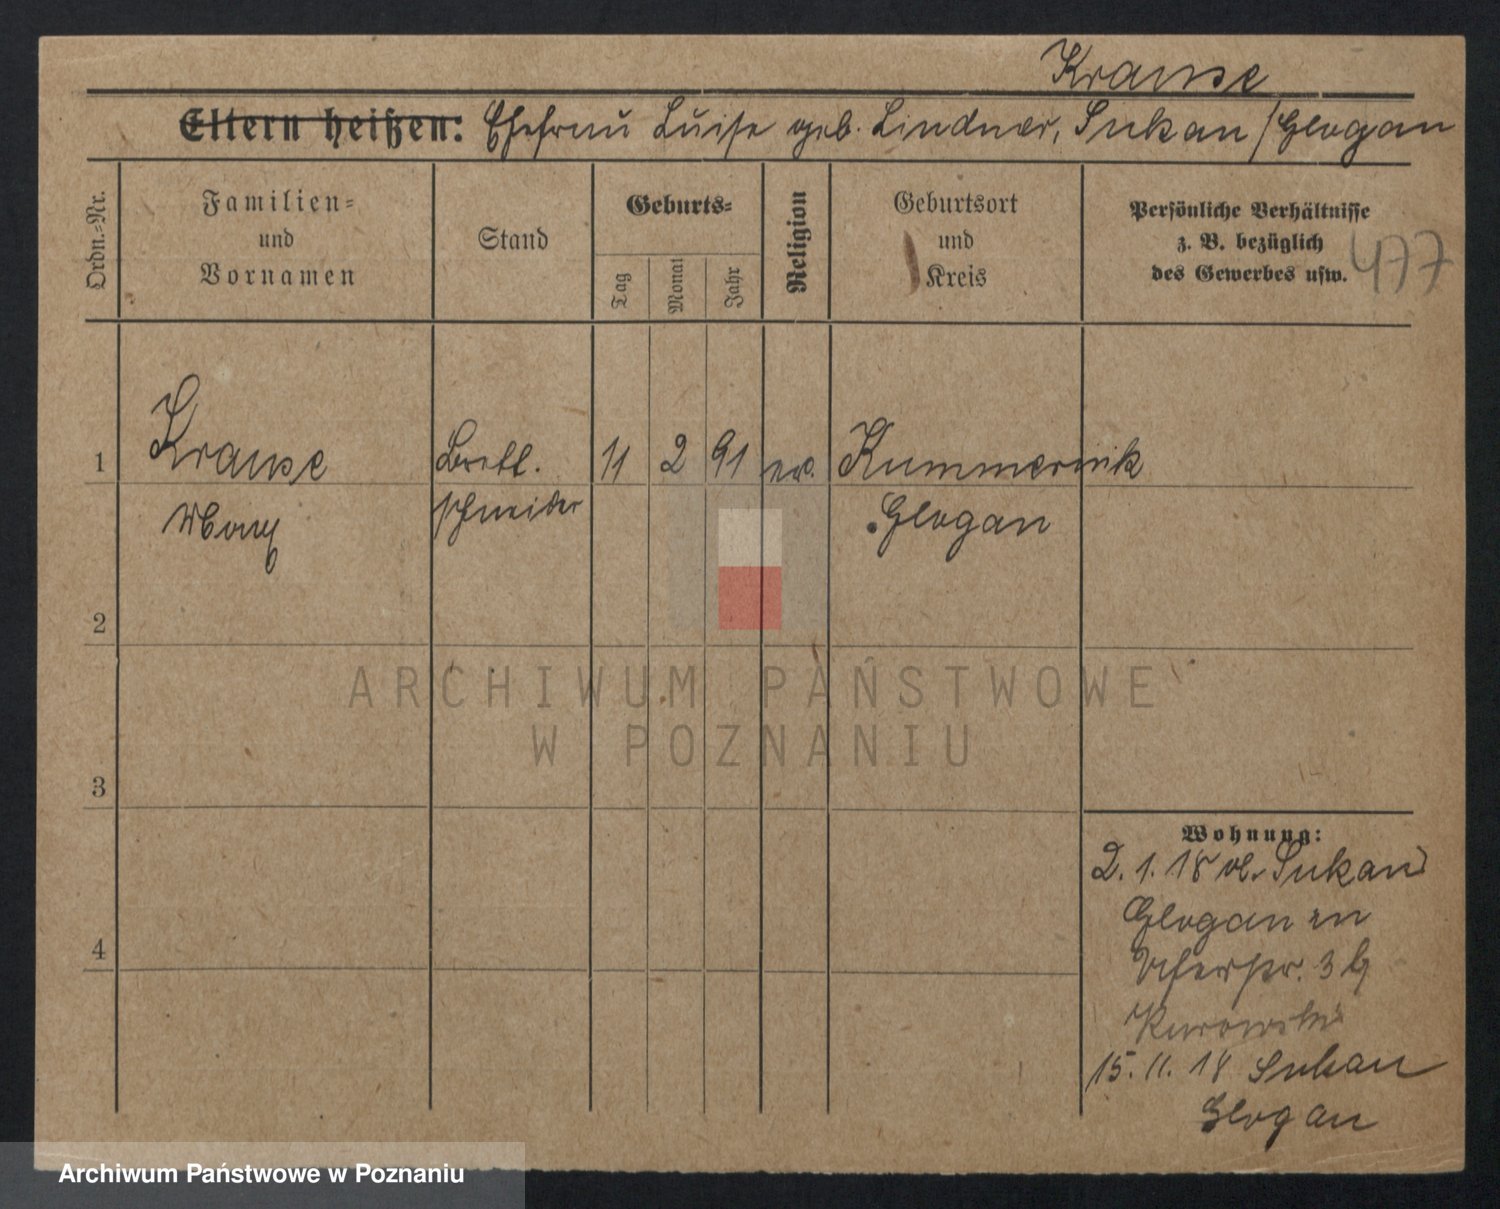 Krause
Eltern heißen: Ehefrau Luise geb. Lindner, Sukau / Glogau
Ordn.-Nr.
Familien-
und
Vornamen
Stand
Geburts-
Tag
Monat
Jahr
Religion
Geburtsort
und
Kreis
Persönliche Verhältnisse
z. B. bezüglich
des Gewerbes usw.
477
1 Krause Brett. 11 2 91 ev. Kummernik
schneider Glogau
2
3
4
Wohnung:
2. 1. 18 v. Sukau
Glogau
3
15. 11. 18 Sukau
Glogau
ARCHIWUM PAŃSTWOWE
W POZNANIU
Archiwum Państwowe w Poznaniu